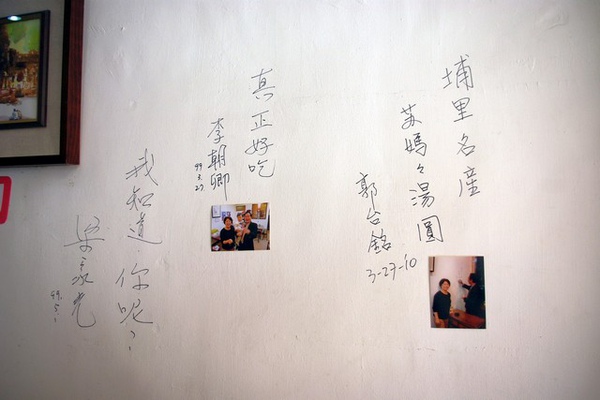 埔里名產
蘇媽々湯圓
郭台銘
3-27-10
真正好吃
李朝卿
99.3.27
我知道,你呢?
梁家光
99.5.1